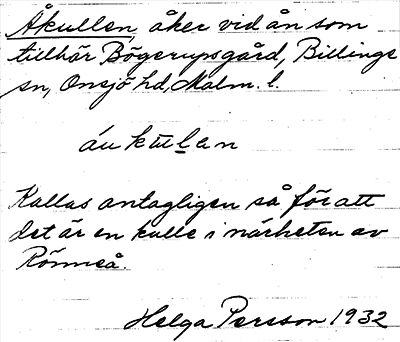 Åkullen, åker vid ån som
tillhör Bögerupsgård, Billinge
sn, Onsjö hd, Malm. l.
áukulan
Kallas antagligen så för att
det är en kulle i närheten av
Rönneå.
Helga Persson 1932